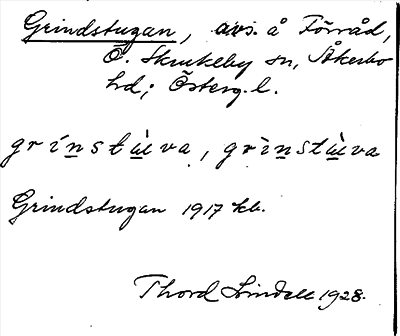 Grindstugan, avs. å Förråd,
Ö. Skrukeby sn, Åkerbo
hd; Österg. l.
grínstùva, grìnstùva
Grindstugan 1917 kb.
Thord Lindell 1928.